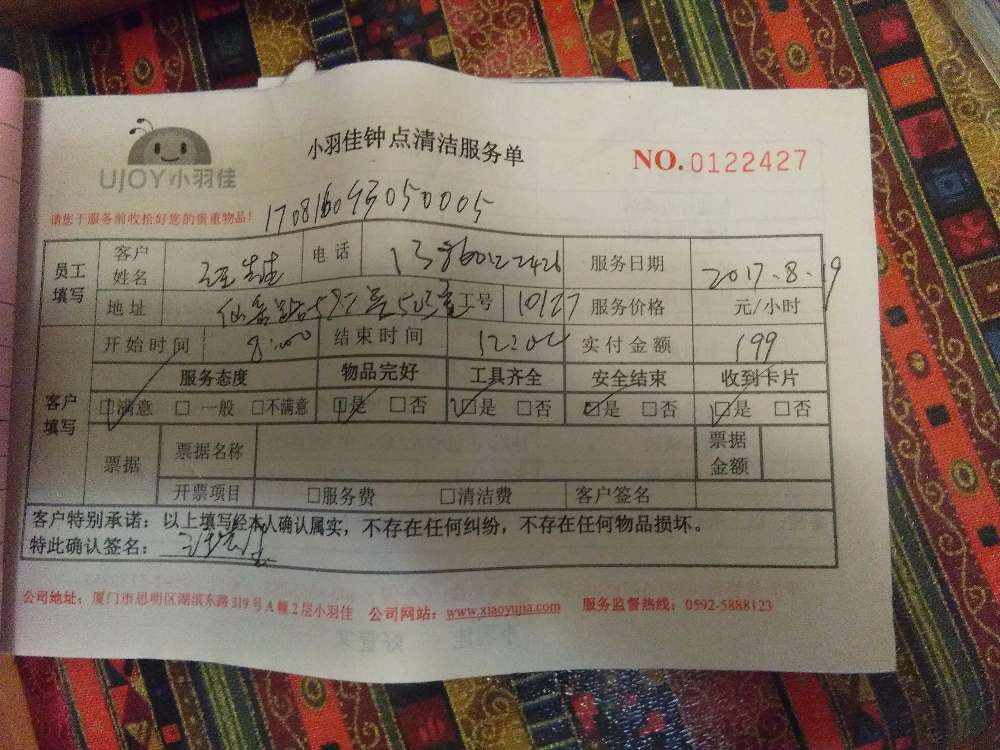 小羽佳钟点清洁服务单
NO.0122427
UJOY小羽佳
请您于服务前收拾好您的贵重物品！
170816093050005
员工填写 客户姓名 电话 服务日期 2017.8.19
地址 工号 10127 服务价格 元/小时
开始时间 8:00 结束时间 12:00 实付金额 199
客户填写 服务态度 物品完好 工具齐全 安全结束 收到卡片
☑满意 □ 一般 □不满意 ☑是 □否 ☑是 □否 ☑是 □否 ☑是 □否
票据 票据名称 票据金额
开票项目 □服务费 □清洁费 客户签名
客户特别承诺：以上填写经本人确认属实，不存在任何纠纷，不存在任何物品损坏。
特此确认签名：
公司地址：厦门市思明区湖滨东路319号A幢2层小羽佳 公司网站：www.xiaoyujia.com 服务监督热线：0592-5888123